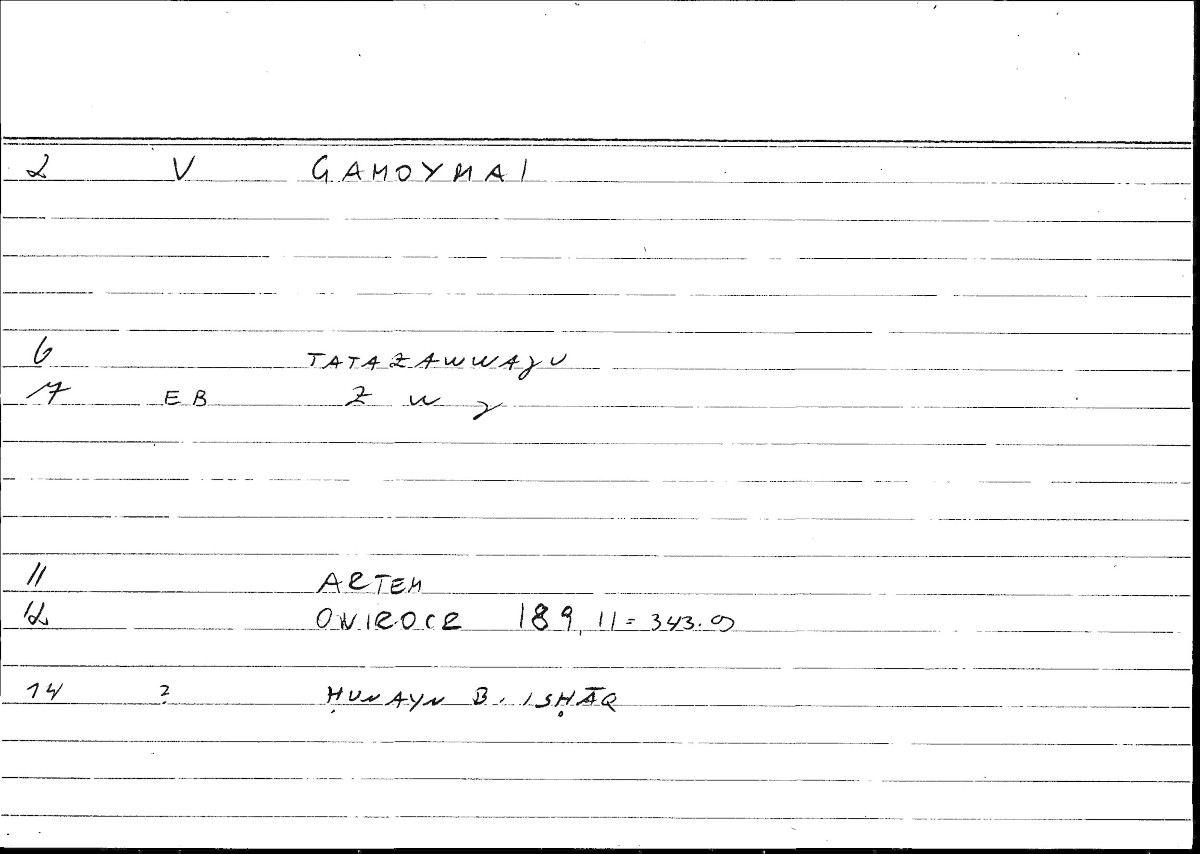 2 V GAMOYMAI
6 TATAZAWWAJU
7 EB Z W J
11 ARTEM
12 ONIROCR 189, 11 = 343.9
14 ? ḤUNAYN B. ISḤĀQ